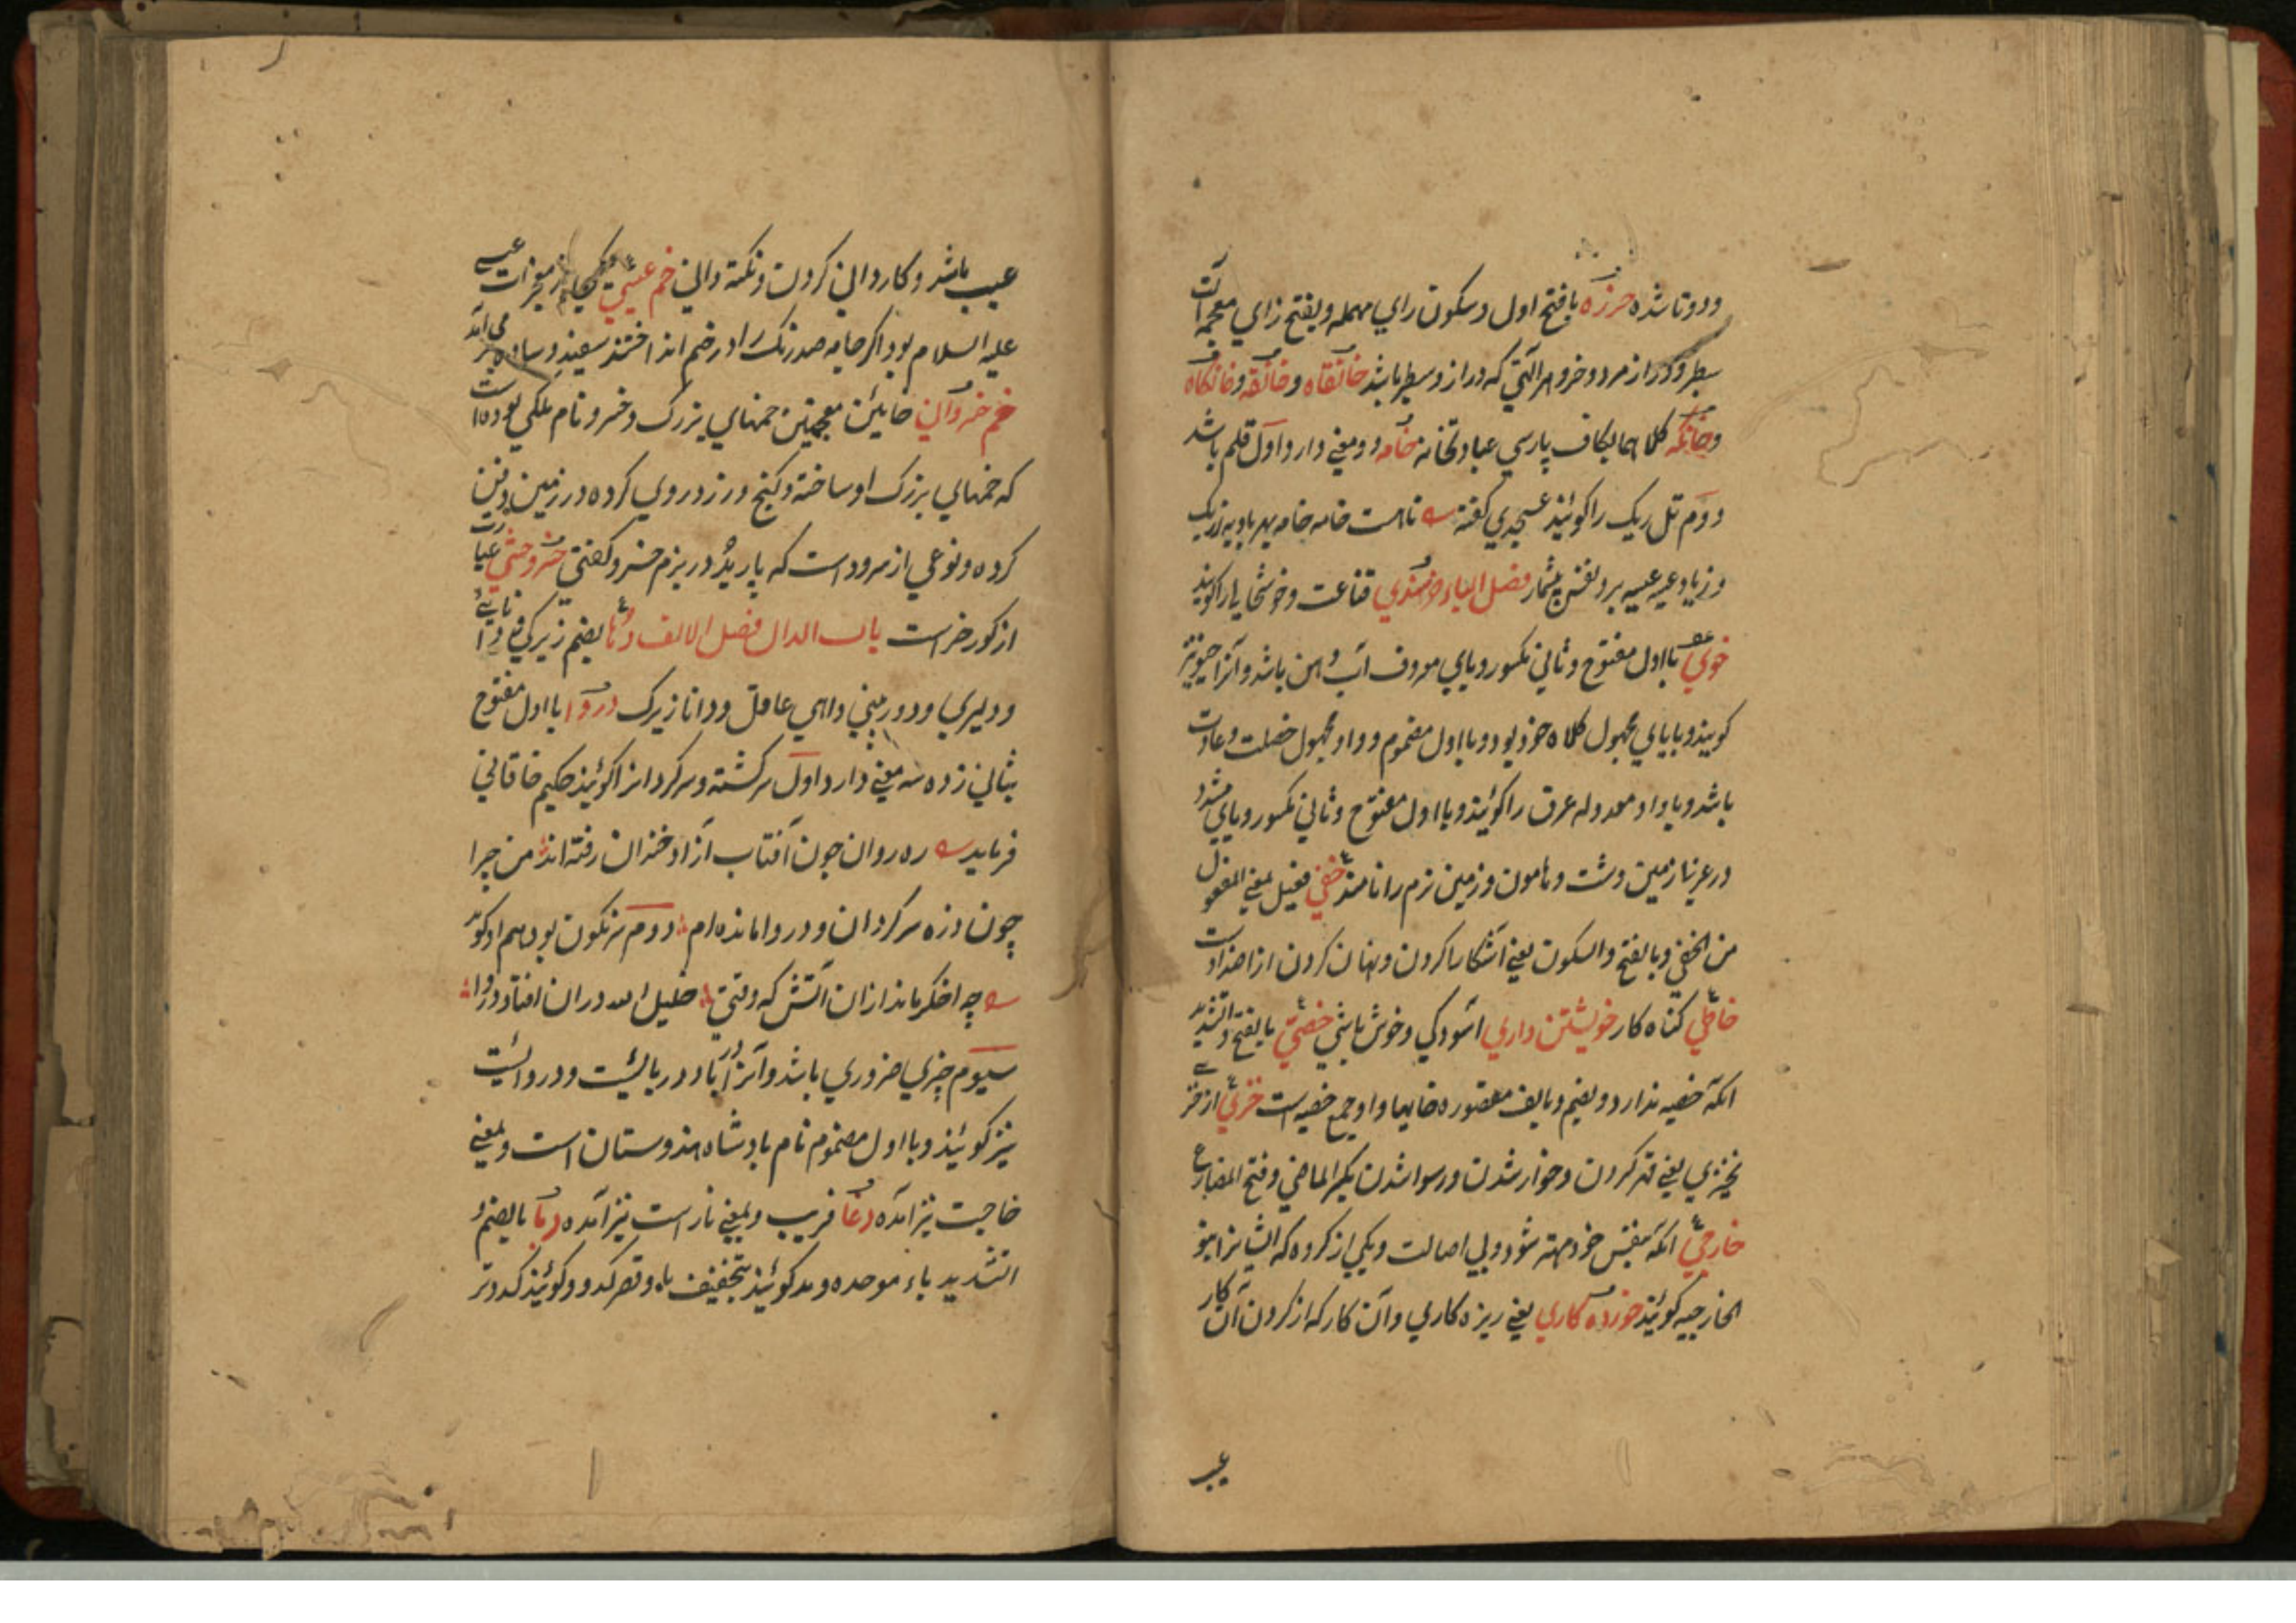 ودوتا شده خرزه بافتح اول وسکون راي مهمله وبفتح زاي معجمه آلت
سطبر ودراز مرد وخر وهر آلتي که دراز وسطبر باشد خانقاه وخانقه وخانکاه
وخانکه کلاهما بکاف پارسي عبادتخانه خامه دو معني دارد اول قلم باشد
دوم تل ريک را کوئيند عسجدي کفته خامه خامه بهر باديه ز ريک
فصل الياء خرسندي قناعت وخوشحالي را کويند
خوي بااول مفتوح وثاني مکسور وياي معروف آب دهن باشد وآنرا خيو نيز
کويند وبا ياي مجهول کلاه خود بود وبا اول مضموم وواو مجهول خصلت وعادت
باشد وبا واو معدوله عرق را کوئيند وبا اول مفتوح وثاني مکسور وياي مشدد
در عربي زمين دشت وهامون وزمين نرم را نامند خفي فعيل بمعني المفعول
من الخفي وبالفتح والسکون يعني آشکارا کردن ونهان کردن از اضدادست
خاطي کناه کار خويشتن داري آسودکي وخوش باشي خصي بالفتح والتشديد
انکه خصيه ندارد وبضم وبالف مقصوره خايها واو جمع خصيه است خزي از خزي
يخزي يعني قهر کردن وخوار شدن ورسوا شدن بکسر الماضي وفتح المضارع
خارجي انکه بنفس خود مهتر شود وبي اصالت ويکي از کروه که ايشانرا
الخارجيه کوئيند خورده کاري يعني ريزه کاري وآن کار که از کردن آن کار
عيب
عيب باشد وکارداني کردن ونکته داني خم عيسي يکي از معجزات عيسي
عليه السلام بود اکر جامه صد رنک را در خم انداختند سفيد وساده بر مي آمد
خم خسرواني خايئن معجمتين خمهاي بزرک وخسرو نام ملکي بوده است
که خمهاي بزرک او ساخته وکنج وزر در وي کرده در زمين دفن
کرده ونوعي از سرود است که باربد در بزم خسرو کفتي خروحشي عبارت
از کورخر است باب الدال فصل الالف دها بضم زيرکي ودانائي
ودليري ودوربيني وداهي عاقل ودانا زيرک دروا بااول مفتوح
بثاني زده سه معني دارد اول سرکشته وسرکردانرا کوئيند حکيم خاقاني
فرمايد ره روان چون آفتاب آزاد وخندان رفته اند من چرا
چون ذره سرکردان ودروا مانده ام دوم سرنکون بود هم او کويد
چه اخکر ماند از ان آتش که وقتي خليل الله در ان افتاد دروا
سيوم چيزي ضروري باشد وآنرا دربا ودربايست ودروايست
نيز کوئيند وبا اول مضموم نام پادشاه هندوستان است وبمعني
حاجت نيز آمده دغا فريب وبمعني ناراست نيز آمده دبا بالضم و
التشديد باء موحده ومد کوئيند بتخفيف باء وقصر کدو وکوئيند کدو تر